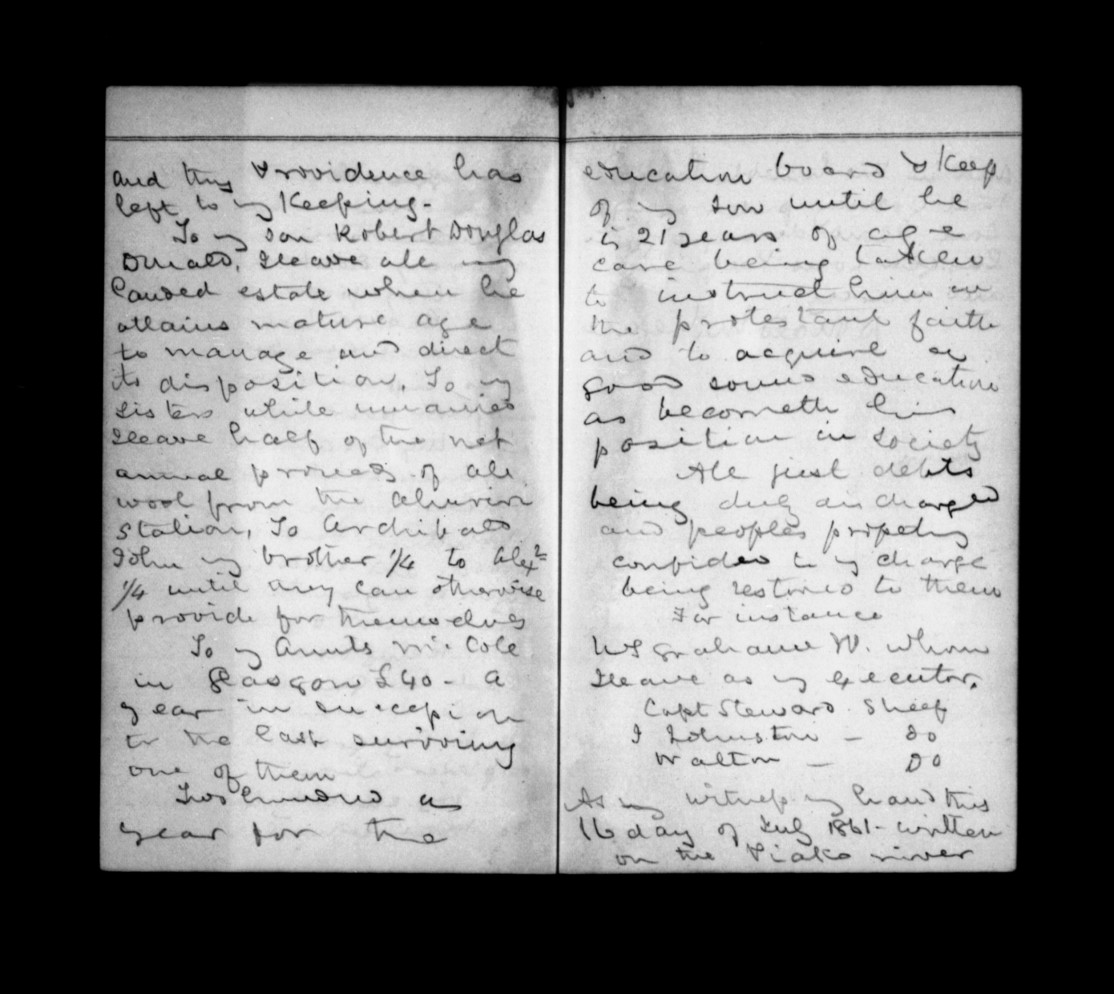 and this Providence has
left to my Keeping.
To my son Robert Douglas
Donald, I leave all my
landed estate when he
attains mature age
to manage and direct
its disposition. To my
sisters while unmarried
I leave half of the net
annual proceeds of all
wool from the Ahuriri
Station, To Archibald
John my brother 1/4 to Alexr
1/4 until they can otherwise
provide for themselves
To my Aunts Mc Cole
in Glasgow £40 - a
year in succession
to the last surviving
one of them
Two hundred a
year for the
education board & Keep
of my son until he
is 21 years of age
care being taken
to instruct him in
the protestant faith
and to acquire a
good sound education
as becometh his
position in Society
All just debts
being duly discharged
and peoples property
confided to my charge
being restored to them
For instance
W S Grahame W. whom
I leave as my executor.
Capt Steward. Sheep
J Johnston - Do
Walton - Do
As my witness my hand this
16 day of July 1861 - written
on the Piako river